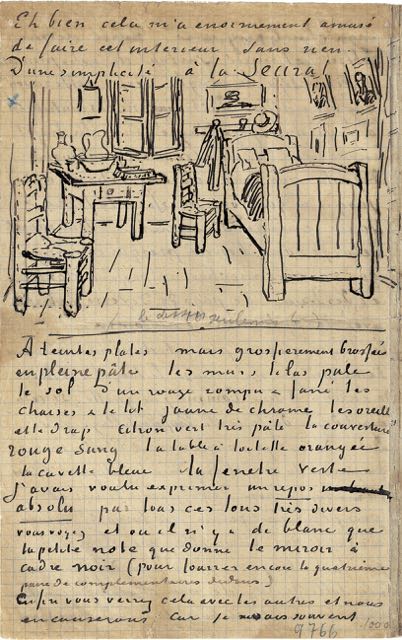 Eh bien cela m'a enormement amusé
de faire cet interieur sans rien.
D'une simplicité à la Seurat
le dessin seulement
A teintes plates mais grossierement brossées
en pleine pâte les murs lilas pale
le sol d'un rouge rompu & fané les
chaises & le lit jaune de chrome les oreillers
et le drap citron vert très pâle la couverture
rouge sang la table à toilette orangée
la cuvette bleue la fenetre verte
J'avais voulu exprimer un repos
absolu par tous ces tons très divers
vous voyez et ou il n'y a de blanc que
la petite note que donne le miroir à
cadre noir (pour fourrer encore la quatrième
paire de complementaires dedans)
Enfin vous verrez cela avec les autres et nous
en causerons. Car je ne sais souvent
9766